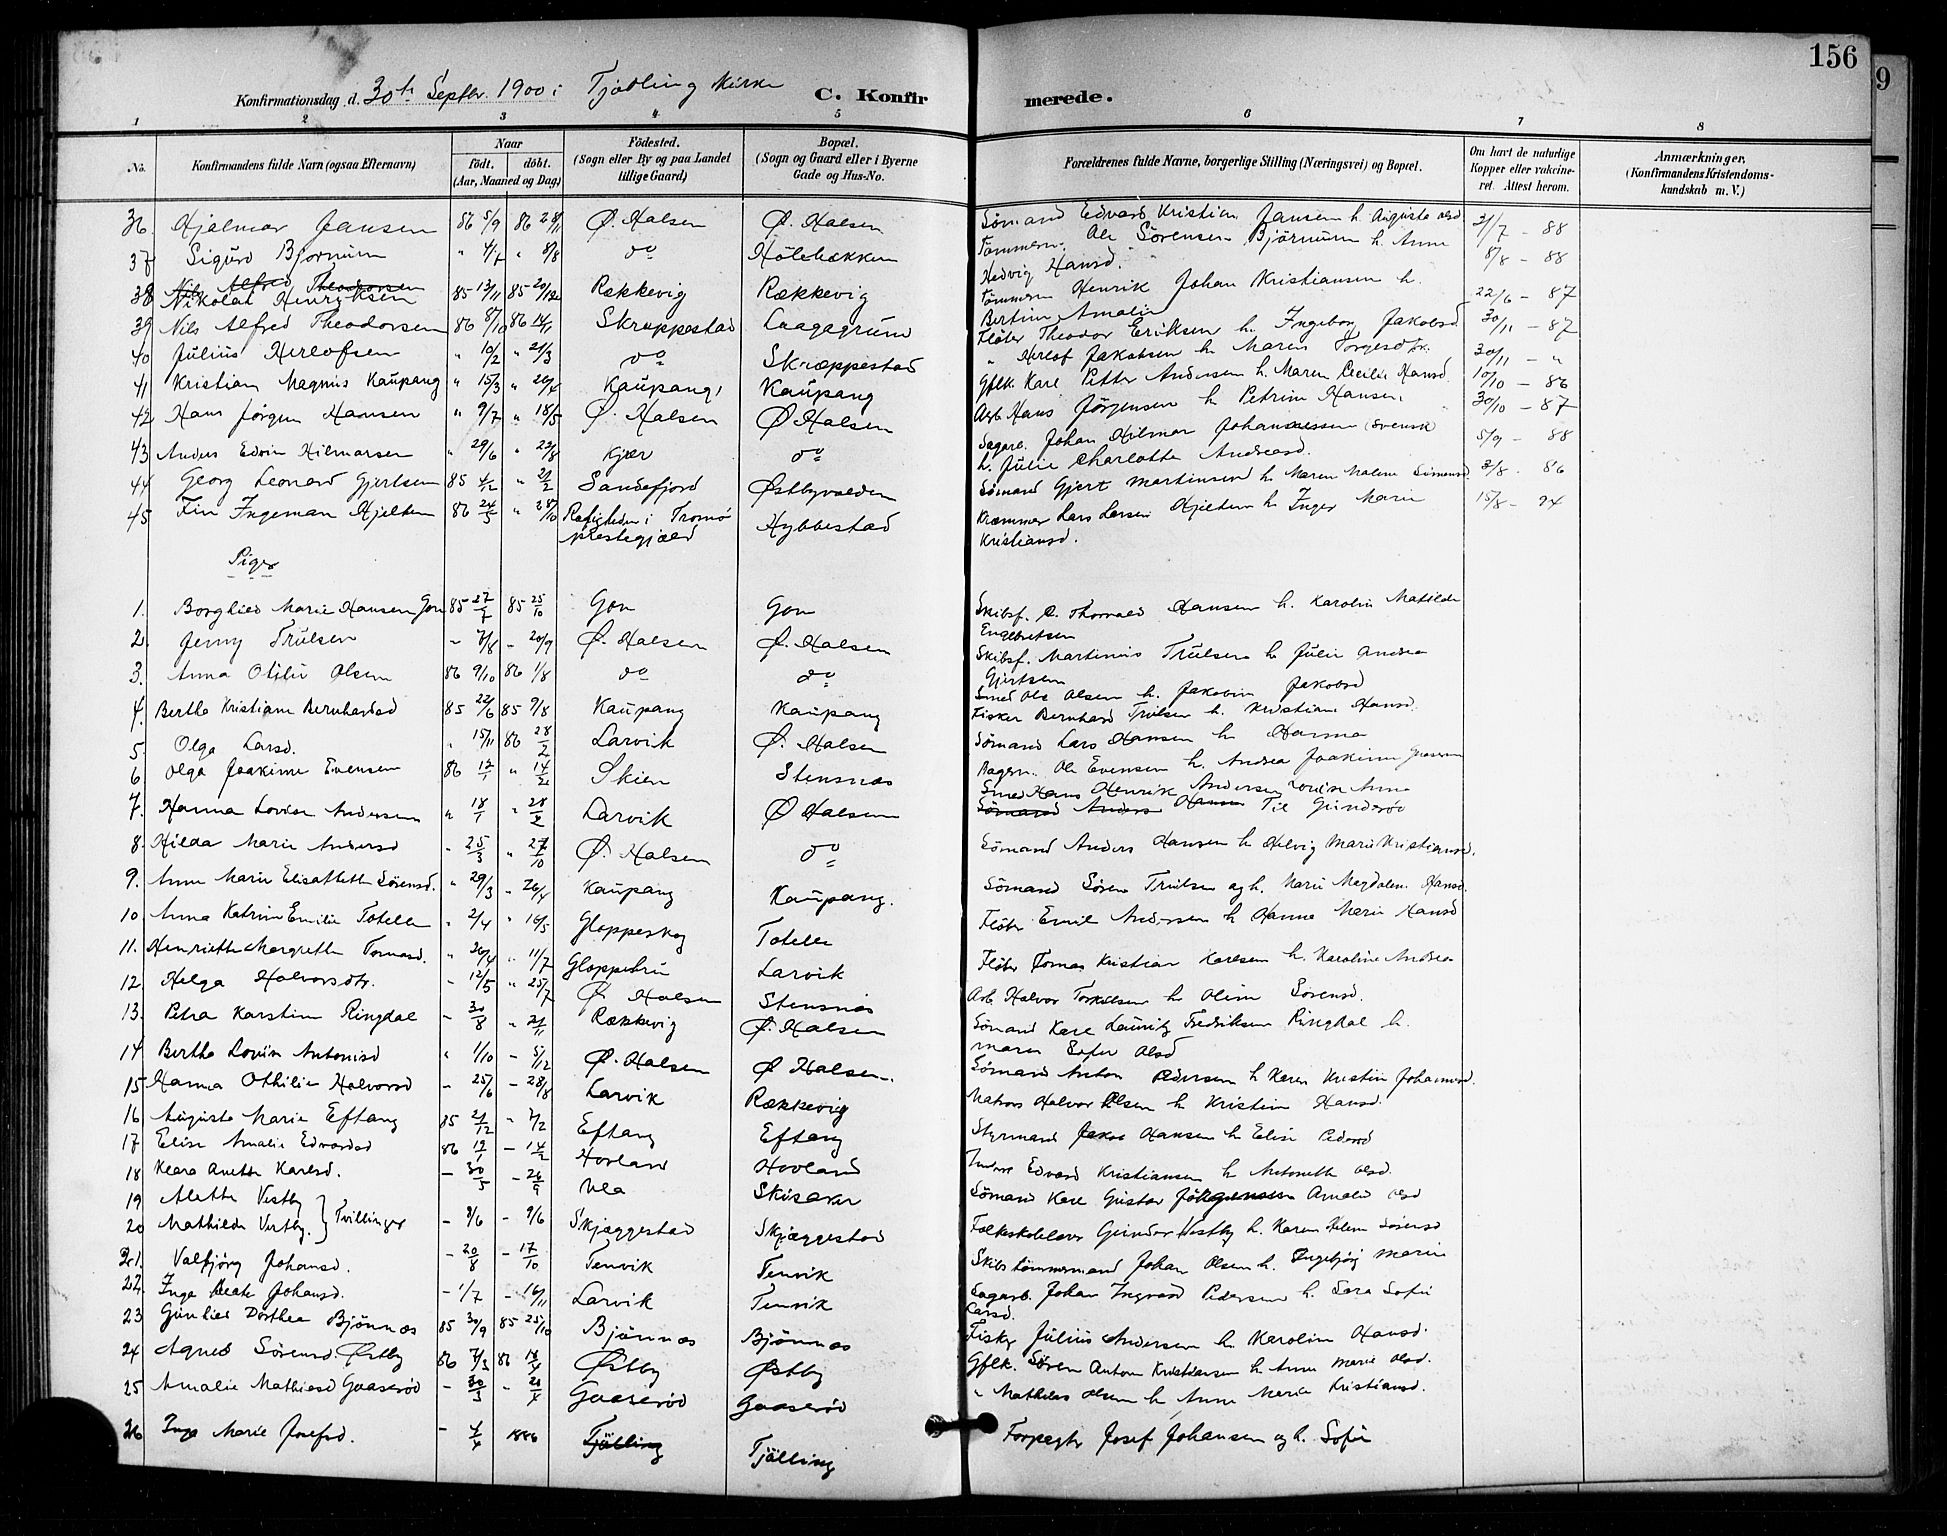 156
9
Konfirmationsdag d. 30te Septbr. 1900 i Tjødling Kirke C. Konfirmerede.
1 2 3 4 5 6 7 8
No. Konfirmandens fulde Navn (ogsaa Efternavn) Naar født. døbt. (Aar, Maaned og Dag) Fødested. (Sogn eller By og paa Landet tillige Gaard) Bopæl. (Sogn og Gaard eller i Byerne Gade og Hus-No. Forældrenes fulde Navne, borgerlige Stilling (Næringsvei) og Bopæl. Om havt de naturlige Kopper eller vakcineret. Attest herom. Anmærkninger, (Konfirmandens Kristendomskundskab m. V.)
36. Hjalmar Jansen 86 5/9 86 28/11 Ø. Halsen Ø. Halsen Sømand Edvard Kristian Jansen h. Augusta Olsd 31/7 - 88
37 Sigurd Bjørnum " 4/7 " 8/8 do Holebakken Tømmerm. Ole Sørensen Bjørnum h. Anne Hedvig Hansd. 8/8 - 88
Nils Alfred Theodorsen
38 Nikolai Henriksen 85 13/11 85 20/12 Rækkevig Rækkevig Tømmerm Henrik Johan Kristiansen h. Bertine Amalie 22/6 - 87
39 Nils Alfred Theodorsen 86 8/10 86 14/11 Skreppestad Laagagrund Fløter Theodor Eriksen h. Ingeborg Jakobsd 30/11 - 87
40 Julius Herlofsen " 10/2 " 21/3 do Skræppestad " Herlof Jakobsen h. Maren 30/11 - "
41 Kristian Magnus Kaupang " 15/3 " 26/4 Kaupang, Kaupang Gflk. Karl Petter Andersen h. Maren Cecilie Hansd. 10/10 - 86
42 Hans Jørgen Hansen " 9/7 " 18/5 Ø. Halsen Ø Halsen Arb. Hans Jørgensen h. Petrine Hansen, 30/10 - 87
43 Anders Edvin Hilmarsen " 29/6 " 29/8 Kjær do Sagarb. Johan Hilmar Johannessen (svensk) h. Julie Charlotte Andreasd. 5/9 - 88
44 Georg Leonard Gjertsen 85 4/12 " 21/2 Sandefjord Østbyvalden Sømand Gjert Martinsen h. Maren Malene Simensd 3/8 - 86
45 Fin Ingeman Hjeltun 86 24/5 " 28/10 i Tromø prestegjæld Hybbestad Kræmmer Lars Larsen Hjeltun h. Inger Marie Kristiansd. 15/8 - 94
Piger
1. Borghild Marie Hansen Gon 85 27/7 85 25/10 Gon Gon Skibsf. C. Thorvald Hansen h. Karoline Matilde Engebretsen
2. Jenny Trulsen - 7/8 - 20/9 Ø. Halsen Ø. Halsen Skibsf. Martinius Trulsen h. Julie Andrea Gjertsen
3. Anna Otilie Olsen 86 9/10 86 1/8 do do Smed Ole Olsen h. Jakobine Jakobsd
4. Bertha Kristiane Bernhardsd 85 22/6 85 9/8 Kaupang Kaupang Fisker Bernhard Trulsen h. Kristiane Hansd.
5 Olga Larsd. " 15/11 86 28/2 Larvik Ø. Halsen Sømand Lars Hansen h. Hanna
6 Olga Joakime Evensen 86 12/1 " 14/2 Skien Stensnæs Bagerm. Ole Evensen h. Andrea Joakime
7. Hanna Lovise Andersen " 18/1 " 28/2 Larvik Ø Halsen Smed Hans Henrik Andersen Louise Anne
Sømand Anders Hansen Til Gunderød
8. Hilda Marie Andersd - 25/3 " 27/10 Ø. Halsen do Sømand Anders Hansen h. Helvig Marie Kristiansd.
9. Anne Marie Elisabeth Sørensd. " 29/3 - 26/4 Kaupang Kaupang. Sømand Søren Trulsen og h. Marie Magdalene Hansd.
10. Anna Katrine Emilie Totelle " 2/4 " 16/5 Gloppeskog Totelle Fløter Emil Andersen h. Hanna Marie Hansd
11. Henriette Margrethe Tomasd. " 26/4 " 11/7 Larvik Fløter Tomas Kristian Karlsen h. Karoline Andrea
12. Helga Halvorsdtr. - 12/5 " 25/7 Ø Halsen Stensnæs Arb. Halvor Torkelsen h. Oline Sørensd.
13. Petra Karstine Ringdal - 30/8 " 21/11 Rækkevig Ø. Halsen Sømand Karl Lauritz Fredriksen Ringdal h. Maren Sofie Olsd
14 Berthe Lovise Antonisd " 1/10 - 5/12 Ø. Halsen Ø Halsen. Sømand Anton Pedersen h Karen Kristine Johannesd.
15 Hanna Othilie Halvorsd - 25/6 - 28/8 Larvik Rækkevig Matros Halvor Olsen h. Kristine Hansd.
16 Augusta Marie Eftang 85 21/12 " 7/2 Eftang Eftang Styrmand Jakob Hansen h. Elise Pedersd
17 Elise Amalie Edvardsd 86 12/1 - 14/2 Hovland Hovland Edvard Kristiansen h. Antonette Olsd.
18 Klara Anette Karlsd. - 30/5 - 26/9 Ula Skisaker Sømand Karl Gustav Jørgensen Amalie Olsd
19 Alette Vestby } Tvillinger
20 Mathilde Vestby. - 8/6 - 9/6 Skjæggestad Skjæggestad Folkeskolelærer Gunder Vestby h. Karen Helene Sørensd
21. Valfjørg Johansd. - 20/8 - 17/10 Tenvik Tenvik Skibstømmermand Johan Olsen h. Ingebjørg Marie
22. Inga Beate Johansd. - 1/7 - 16/11 Larvik Tenvik Sagarb. Johan Ingvard Pedersen h. Sara Sofie Larsd.
23 Gunhild Dorthea Bjønnæs 85 30/9 85 25/10 Bjønnæs Bjønnæs Fisker Julius Andersen h. Karoline Hansd.
24 Agnes Sørensd. Østby 86 7/3 86 18/4 Østby Østby Gflk. Søren Anton Kristiansen h. Anne Marie Olsd.
25 Amalie Mathiesd Gaaserød - 30/3 " 20/4 Gaaserød Gaaserød " Mathias Olsen h. Anne Marie Kristiansd.
26 Inga Marie Josefsd. - 4/4 1886 Tjølling Tjølling Forpagter Josef Johansen og h. Sofie